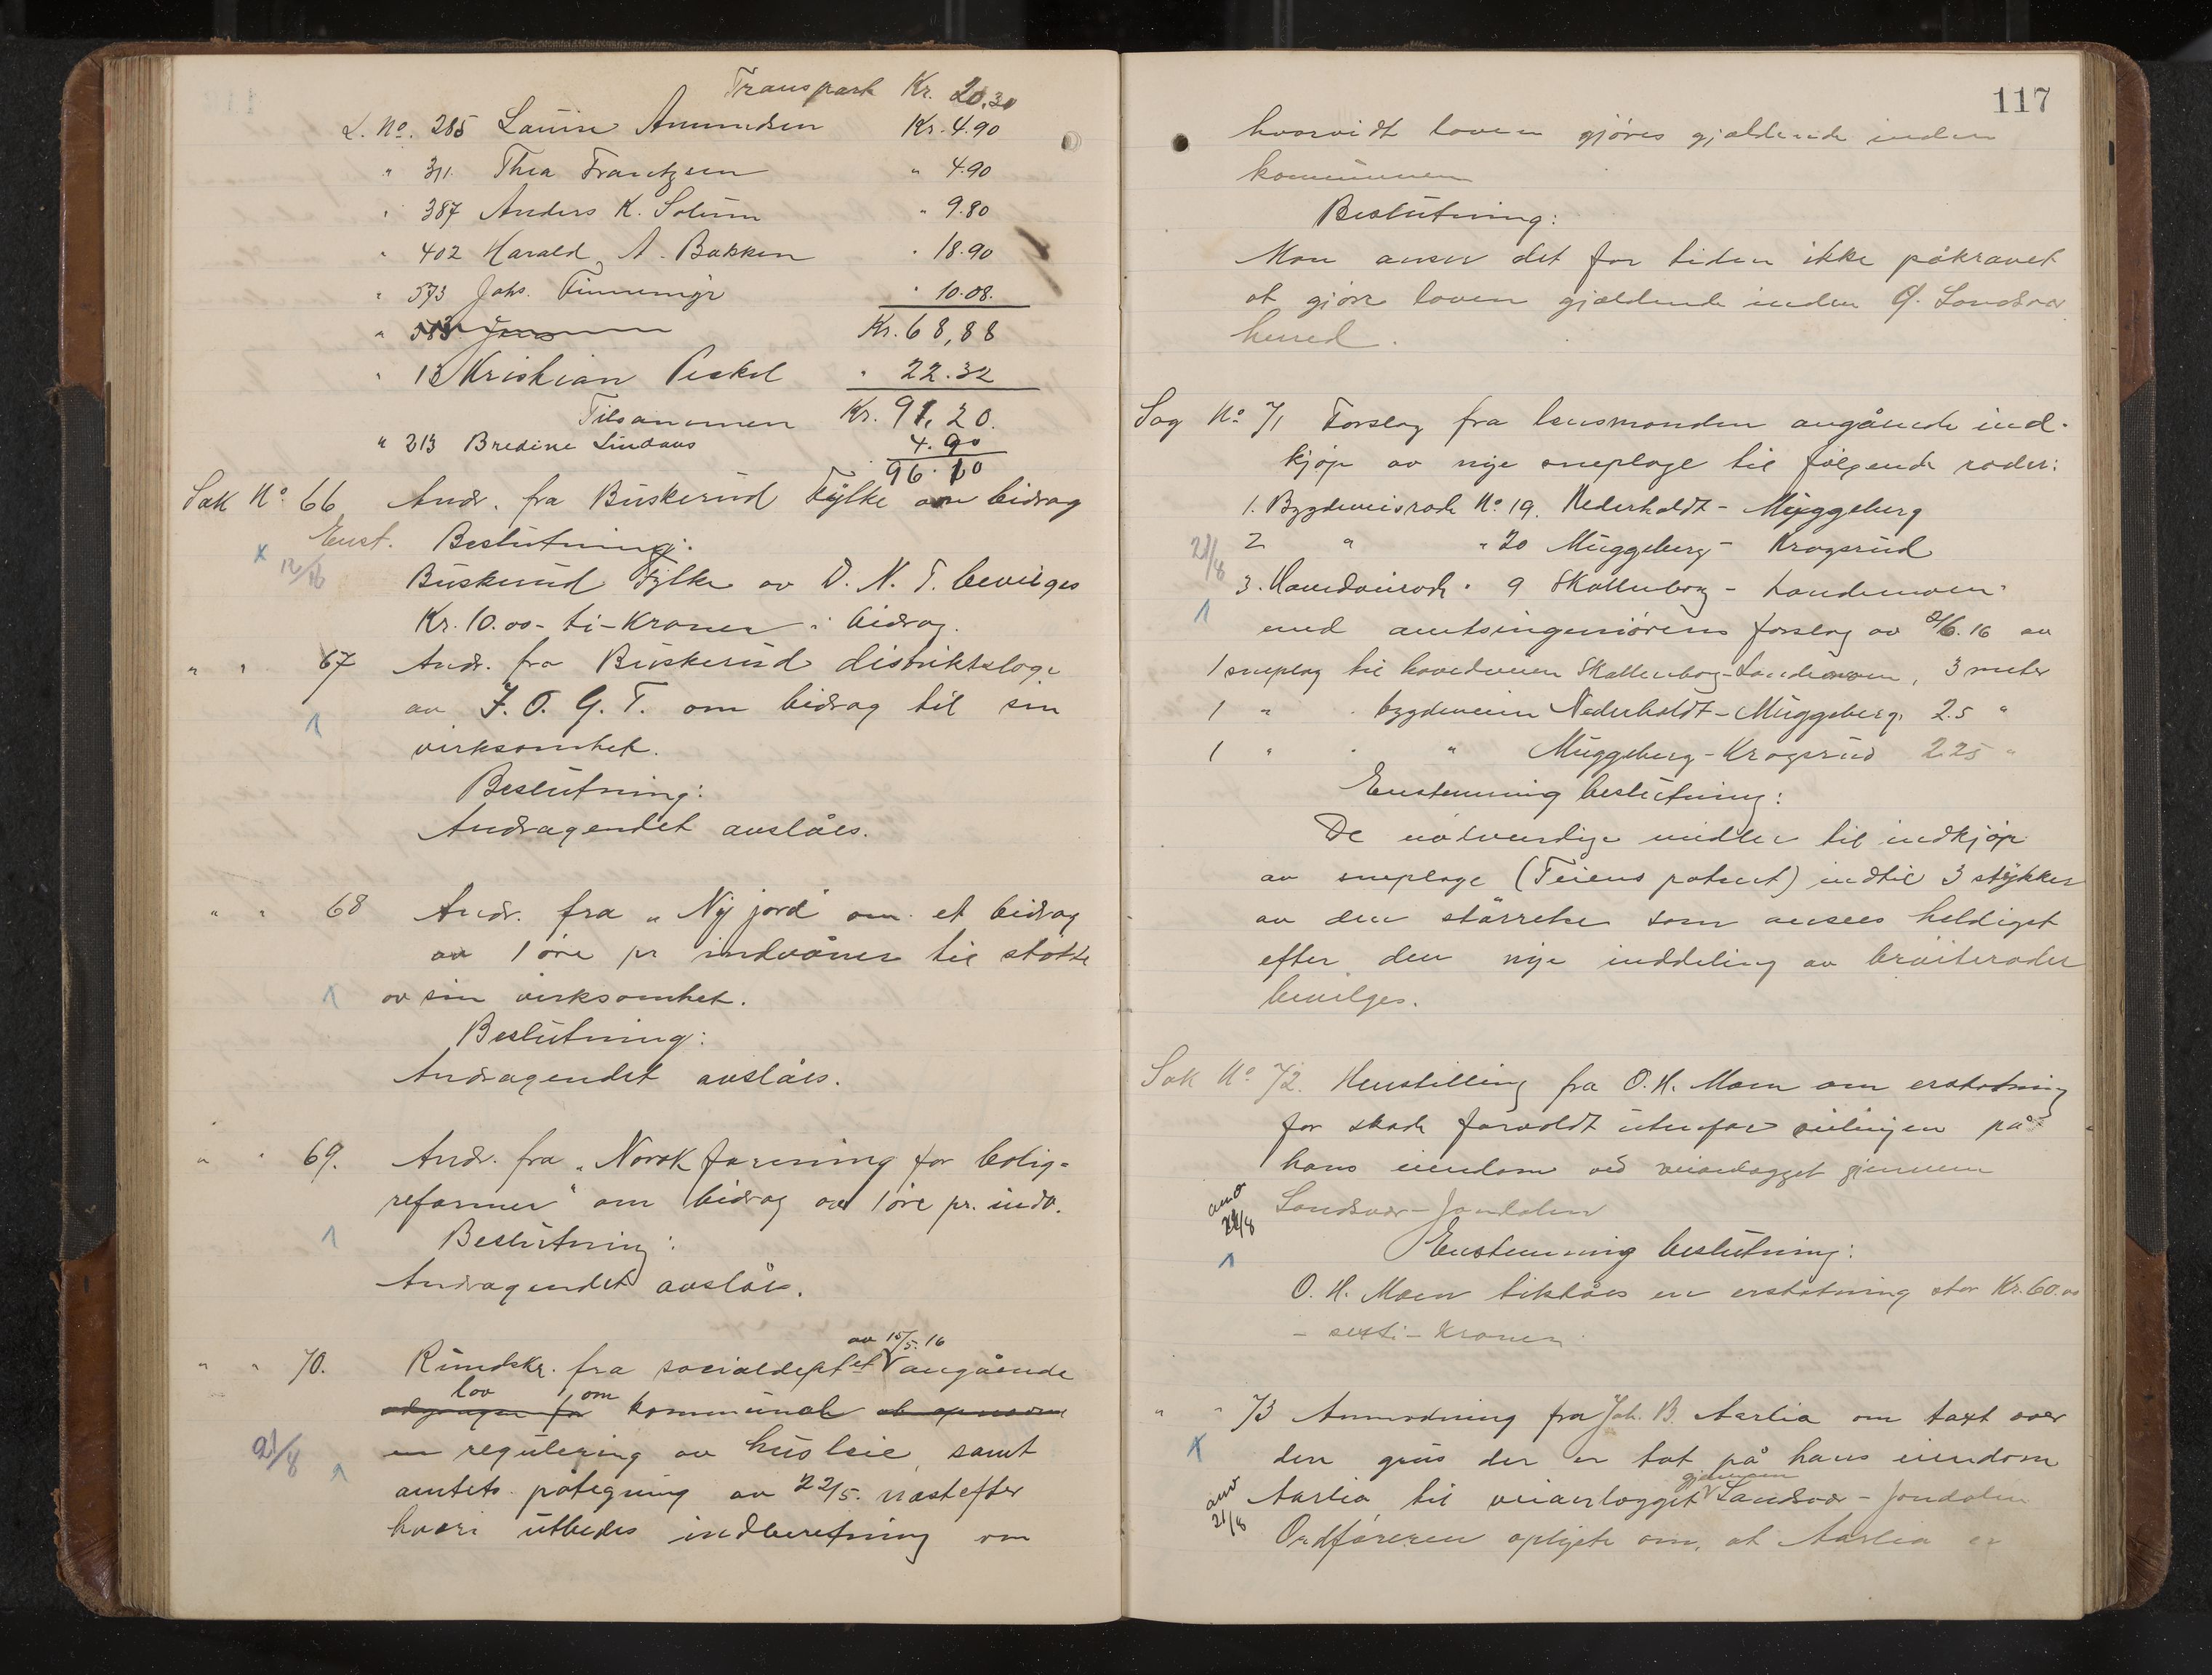 Transport Kr. 20.30
L. No. 285 Lauin Amundsen Kr. 4.90
" 311. Thea Frantzsen " 4.90
" 387 Anders K. Solum " 9.80
" 402 Harald A. Bakken " 18.90
" 573 Johs. " 10.08.
" 583 Jens Kr. 68,88
" 13 Kristian Peckel " 22.32
Tilsammen Kr. 91,20.
" 213 Bredine Lindaas 4.90
96.10
Sak No 66 Andr. fra Buskerud Fylke om bidrag
Enst. Beslutning:
x 12/16
Buskerud Fylke av D. N. T. bevilges
Kr. 10.00 - ti - Kroner i bidrag.
" " 67 Andr. fra Buskerud distriktsloge
av I. O. G. T. om bidrag til sin
virksomhet.
Beslutning:
Andragendet avslåes.
" " 68 Andr. fra "Ny jord" om et bidrag
av 1 øre pr indvåner til støtte
av sin virksomhet.
Beslutning:
Andragendet avslåes.
" " 69. Andr. fra "Norsk forening for bolig-
reformer" om bidrag av 1 øre pr. indv.
Beslutning:
Andragendet avslåes.
av 15/5.16
" " 70. Rundskr. fra socialdeptet angående
lov om
kommunal
regulering av husleie, samt
21/8
amtets påtegning av 22/5. næstefter
hvori utbedes indberetning om
117
hvorvidt loven gjøres gjældende inden
kommunen
Beslutning:
Man anser det for tiden ikke påkrævet
at gjøre loven gjældende inden Y. Sandsvær
herred.
Sag No 71 Forslag fra lensmanden angående ind-
kjøp av nye sneploge til følgende roder:
1. Bygdeveisrode No 19. Nederholdt - Muggeberg
2 " " 20 Muggeberg - Krogsrud
21/8
3. Hovedveirode " 9 Skollenborg - Landemoen
med amtsingeniørens forslag av 2/6.16 av
1 sneplog til hovedveien Skollenborg - Landemoen, 3 meter
1 " " bygdeveien Nederholdt - Muggeberg, 2.5 "
1 " " " Muggeberg - Krogsrud 2.25 "
Enstemmig beslutning:
De nødvendige midler til indkjøp
av sneploge (Teiens patent) indtil 3 stykker
av den størrelse som ansees heldigst
efter den nye inddeling av brøiteroder
bevilges.
Sak No 72. Henstilling fra O. H. Moen om erstatning
for skade forvoldt utenfor veilinjen på
hans eiendom ved veianlægget gjennem
Sandsvær - Jondalen
22/8
Enstemmig beslutning:
O. H. Moen tilståes en erstatning stor Kr. 60.00
- sexti - Kroner.
" " 73 Anmodning fra Joh. B. Aarlia om taxt over
den grus der er tat på hans eiendom
gjennem
Aarlia til veianlægget Sandsvær - Jondalen
21/8
Ordføreren oplyste om, at Aarlia er